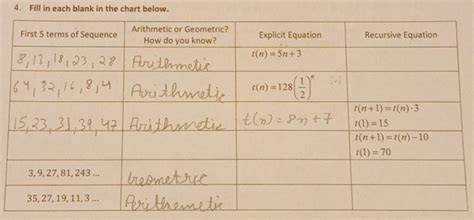 4. Fill in each blank in the chart below.
First 5 terms of Sequence
Arithmetic or Geometric?
How do you know?
Explicit Equation
Recursive Equation
8, 13, 18, 23, 28
Arithmetic
t(n) = 5n + 3
64, 32, 16, 8, 4
Arithmetic
t(n) = 128(1/2)^n
15, 23, 31, 39, 47
Arithmetic
t(n) = 8n + 7
t(n+1) = t(n)·3
t(1) = 15
t(n+1) = t(n) – 10
t(1) = 70
3, 9, 27, 81, 243 ...
Geometric
35, 27, 19, 11, 3 ...
Arithemetic